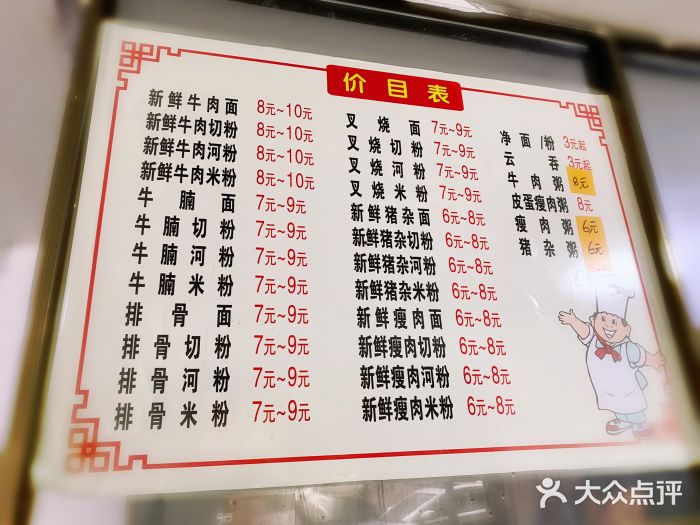 价目表
新鲜牛肉面 8元~10元
新鲜牛肉切粉 8元~10元
新鲜牛肉河粉 8元~10元
新鲜牛肉米粉 8元~10元
牛腩面 7元~9元
牛腩切粉 7元~9元
牛腩河粉 7元~9元
牛腩米粉 7元~9元
排骨面 7元~9元
排骨切粉 7元~9元
排骨河粉 7元~9元
排骨米粉 7元~9元
叉烧面 7元~9元
叉烧切粉 7元~9元
叉烧河粉 7元~9元
叉烧米粉 7元~9元
新鲜猪杂面 6元~8元
新鲜猪杂切粉 6元~8元
新鲜猪杂河粉 6元~8元
新鲜猪杂米粉 6元~8元
新鲜瘦肉面 6元~8元
新鲜瘦肉切粉 6元~8元
新鲜瘦肉河粉 6元~8元
新鲜瘦肉米粉 6元~8元
净面/粉 3元起
云吞 3元起
牛肉粥 8元
皮蛋瘦肉粥 8元
瘦肉粥 6元
猪杂粥 6元
大众点评